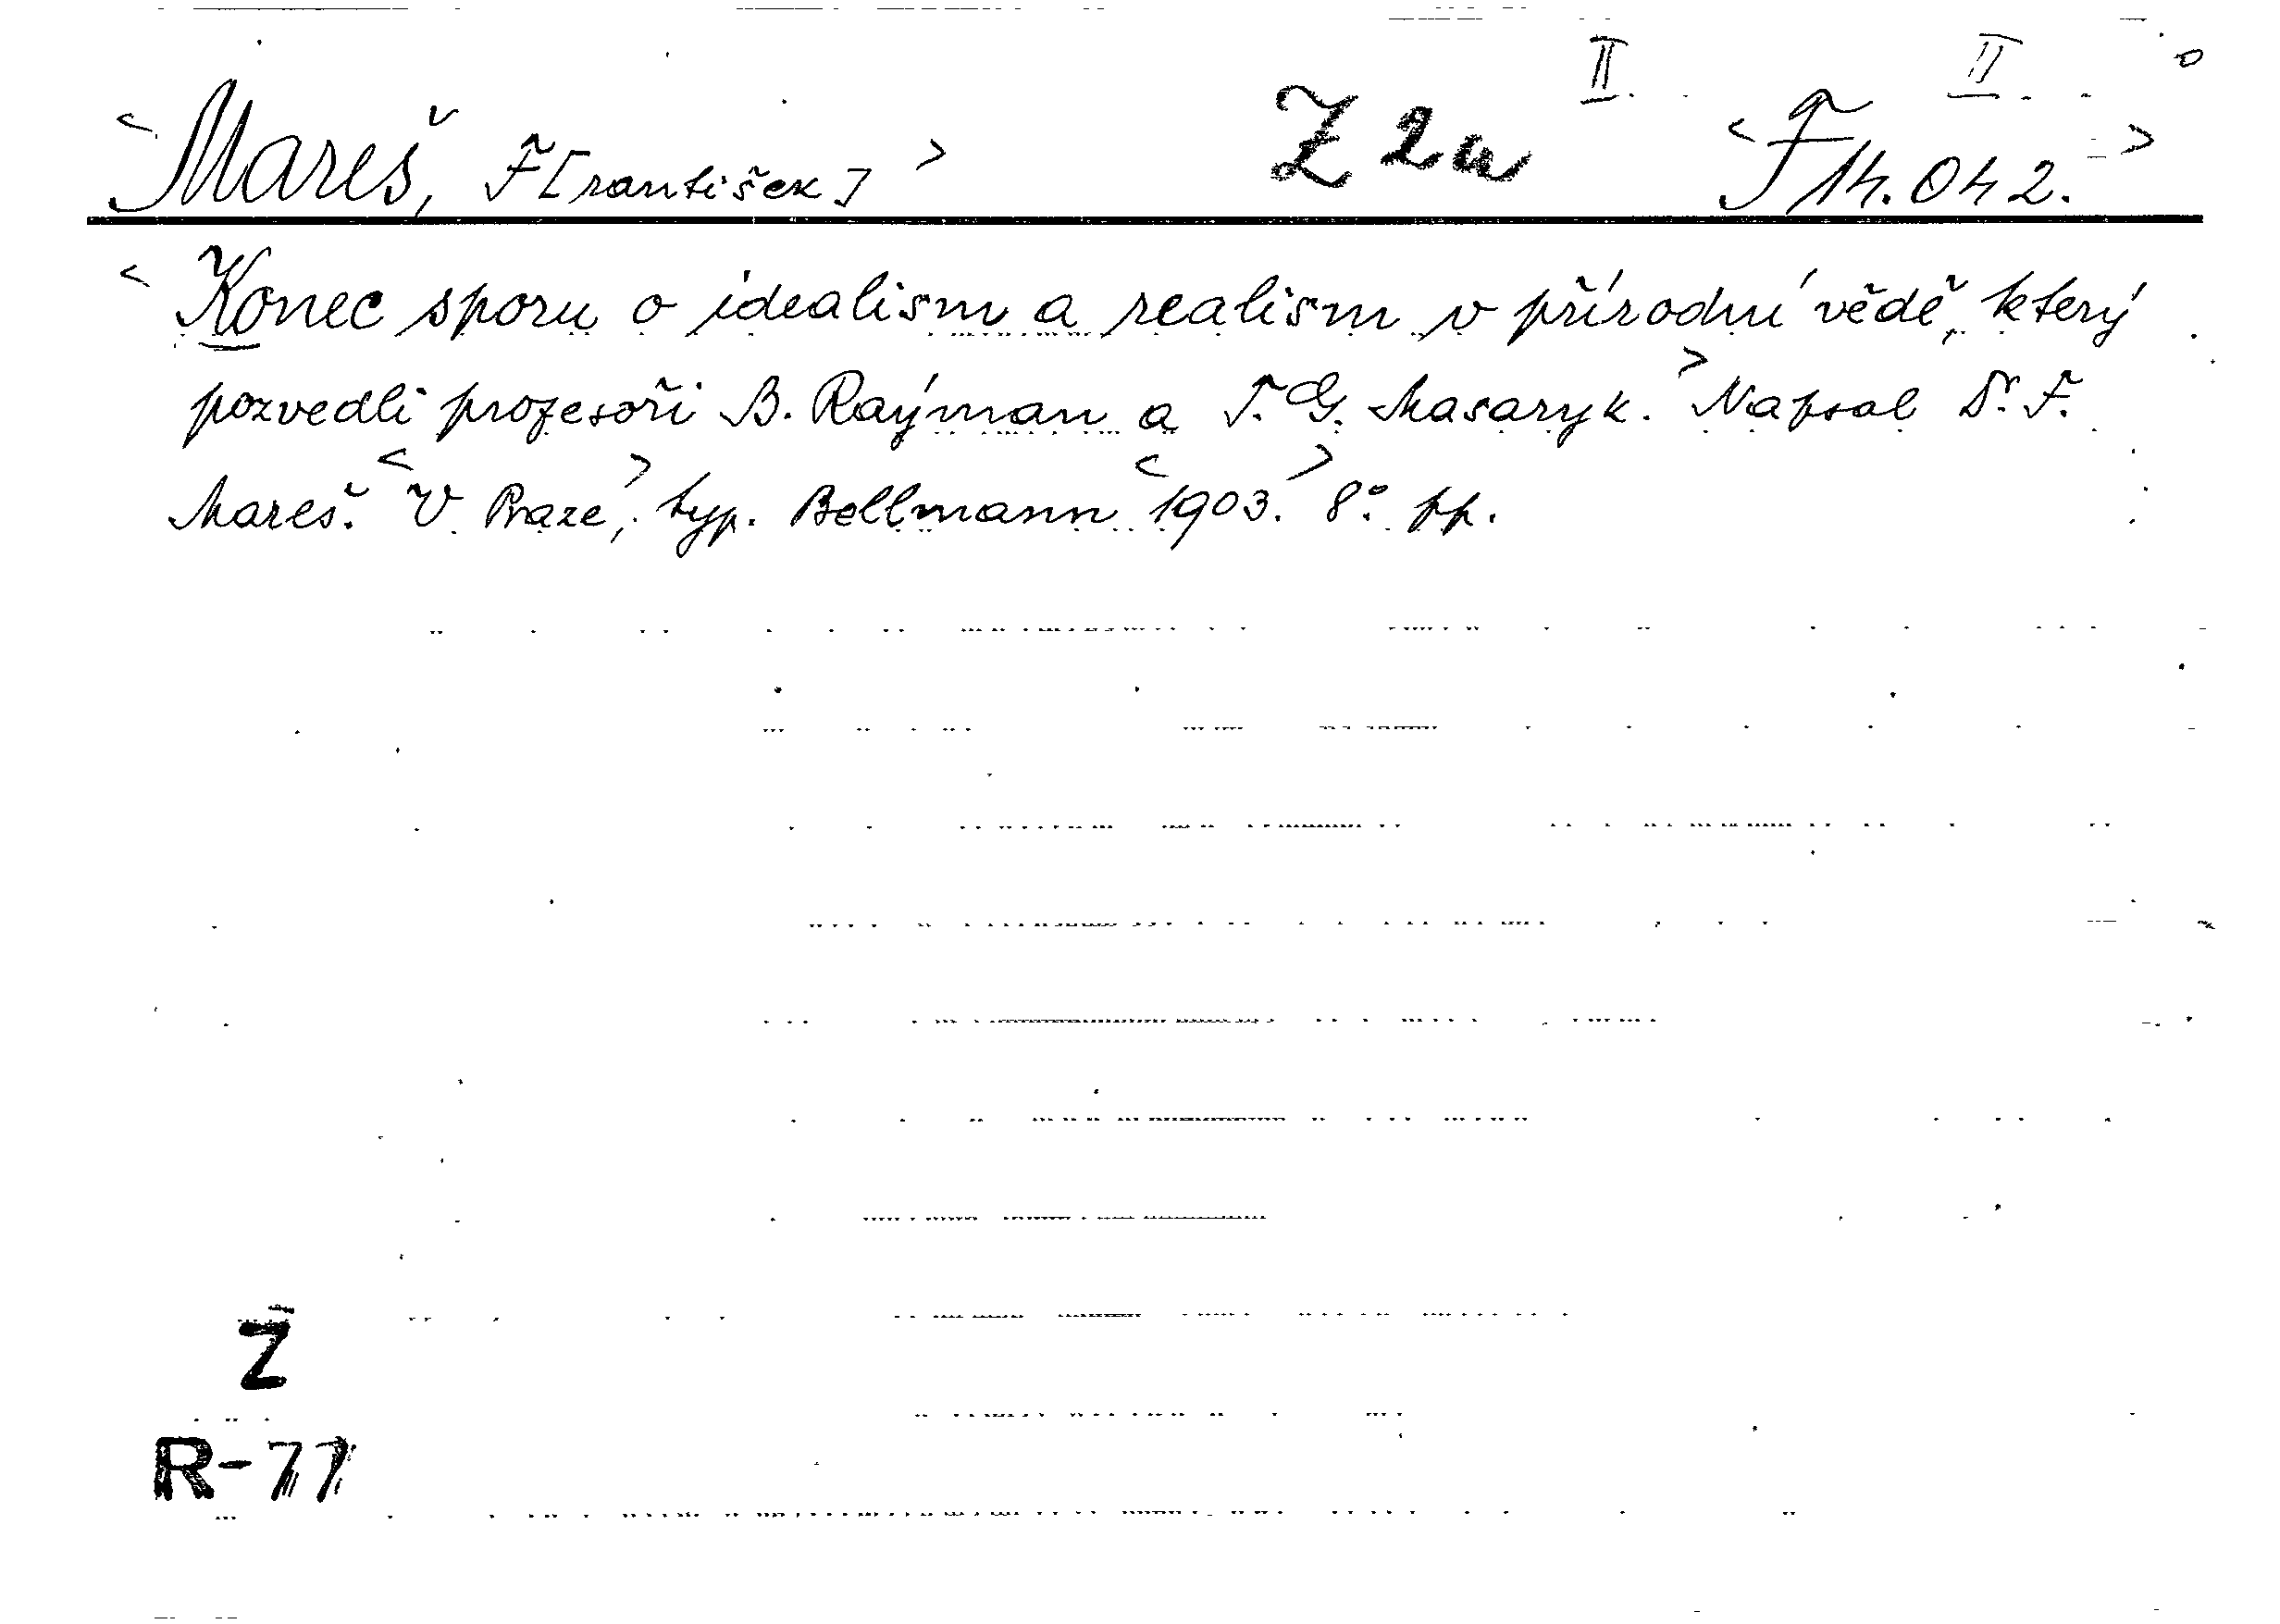 II. II.
<Mareš, F[rantišek]> Z 2a <F 14.042.>
<Konec sporu o idealism a realism v přírodní vědě, který
pozvedli profesoři B. Raýman a T. G. Masaryk.> Napsal Dr. F.
Mareš. <V Praze,> typ. Bellmann <1903.> 8° pp.
Z
R-77